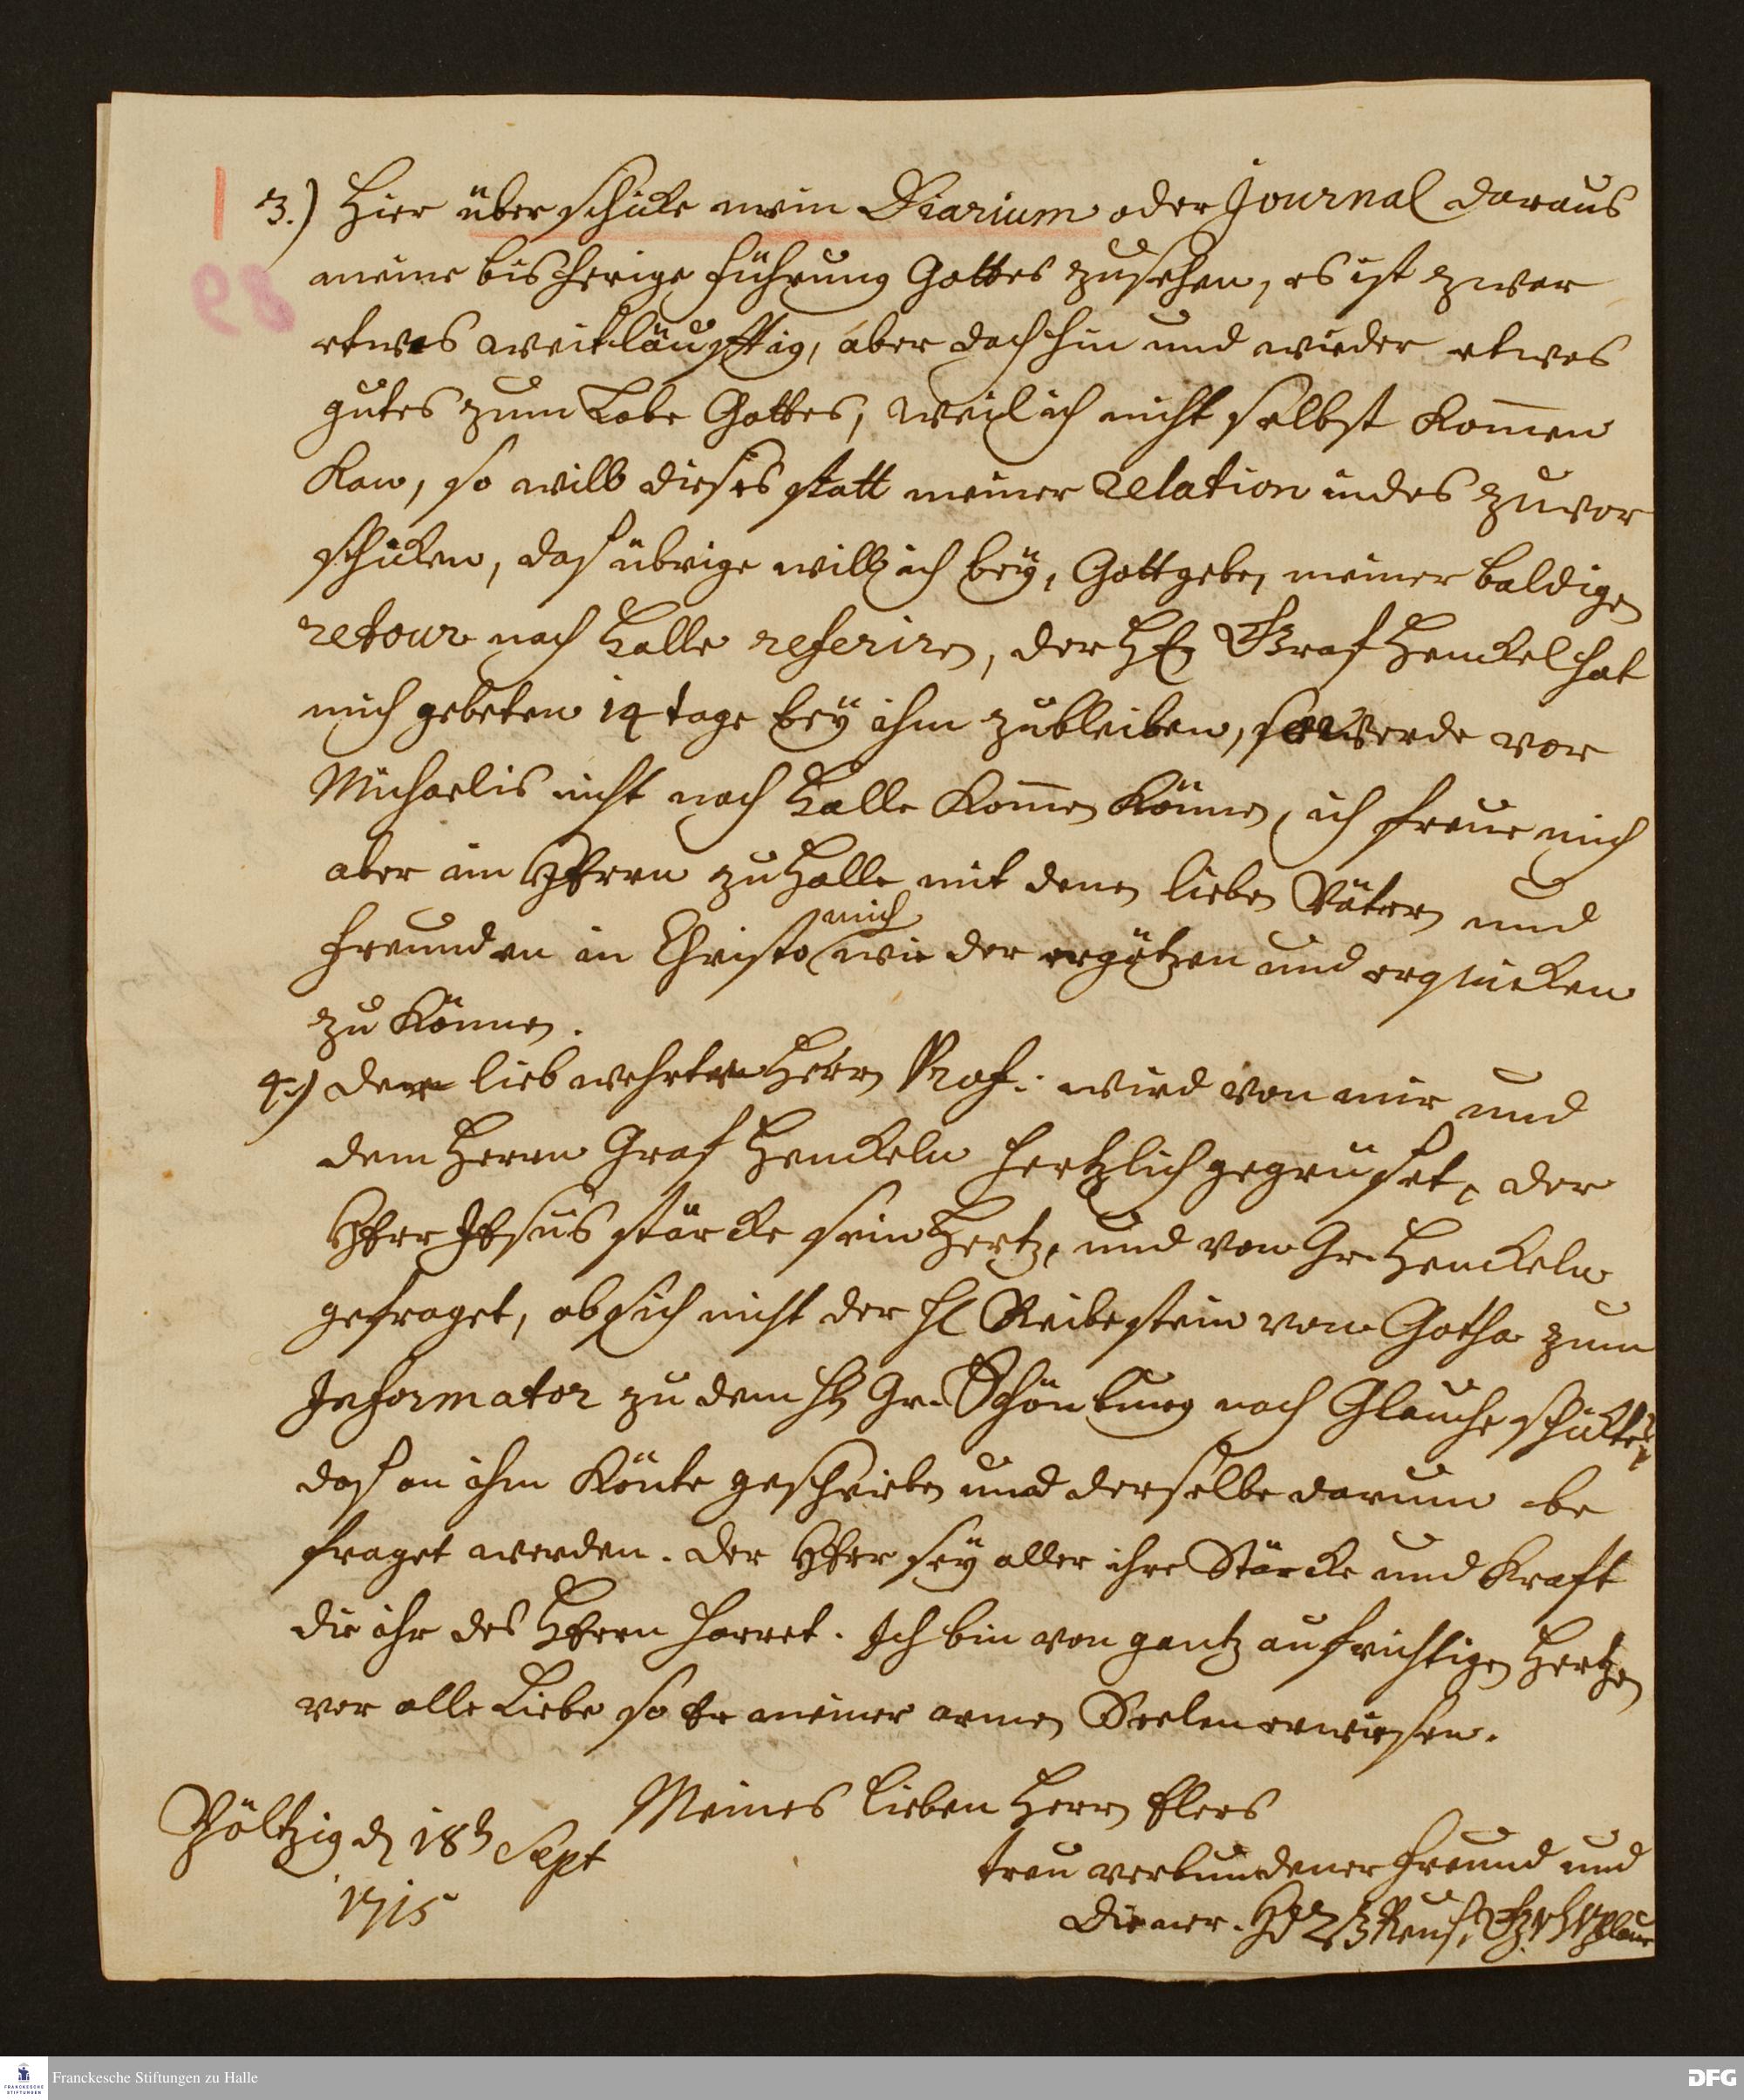 3.) Hier überschicke mein Diarium oder Journal daraus
meine bisherige führung Gottes zusehen, es ist zwar
etwas weitläuftig, aber doch hin und wieder etwas
gutes zum Lobe Gottes, weil ich nicht selbst kom̄en
kan, so will dieses statt meiner relation indes zuvor
schicken, das übrige will ich bey, Gott gebe, meiner baldigen
retour nach Halle referiren, der Graf Henckel hat
mich gebeten 14 tage bey ihm zubleiben, werde vor
Michaelis nicht nach Halle kom̄en können, ich freue mich
aber im HErrn zu Halle mit denen lieben Vätern und
mich
freunden in Christo wieder ergötzen und erquicken
zu können.
4.) Der lieb wehrte Herr Prof: wird von mir und
dem Herrn Graf Henckeln hertzlich gegrüßet, der
HErr JEsus stärcke sein Hertz, und von Gr. Henckeln
gefraget, ob sich nicht der H Reibestein von Gotha zum
Informator zu dem H Gr. Schönburg nach Glauche schickte,
daß an ihm könte geschrieben und derselbe darum be
fraget werden. Der HErr sey aller ihre Stärcke und Krafft
die ihr des HErrn harret. Ich bin von gantz aufrichtigen Hertzen
vor alle Liebe so Er meiner armen Seelen erwiesen.
Meines lieben Herrn Elers
treu verbundener Freund und
Diener. Reuß Plaue
Pöltzig d 18 Sept
1715
89
Franckesche Stiftungen zu Halle
FRANCKESCHE
STIFTUNGEN
DFG